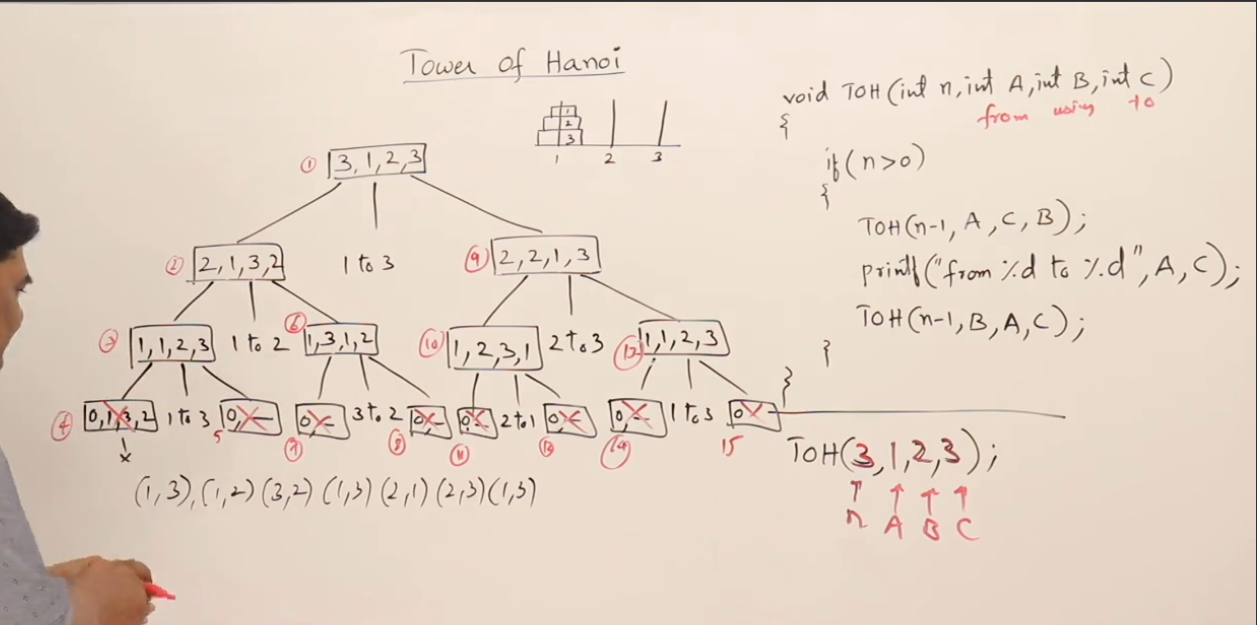 Tower of Hanoi
1
2
3
1 2 3
① 3,1,2,3
② 2,1,3,2 1 to 3 ⑨ 2,2,1,3
③ 1,1,2,3 1 to 2 ⑥ 1,3,1,2 ⑩ 1,2,3,1 2 to 3 1,1,2,3
④ 0,1,3,2 1 to 3 5 0, 3 to 2 ⑧ 0, ⑪ 0 2 to 1 0 0, 1 to 3 15 0
x
(1,3),(1,2)(3,2)(1,3)(2,1)(2,3)(1,3)
void TOH(int n,int A,int B,int C)
from using to
{
if(n>0)
{
TOH(n-1, A,C,B);
printf("from %d to %d", A,C);
TOH(n-1,B,A,C);
}
}
TOH(3,1,2,3);
n A B C